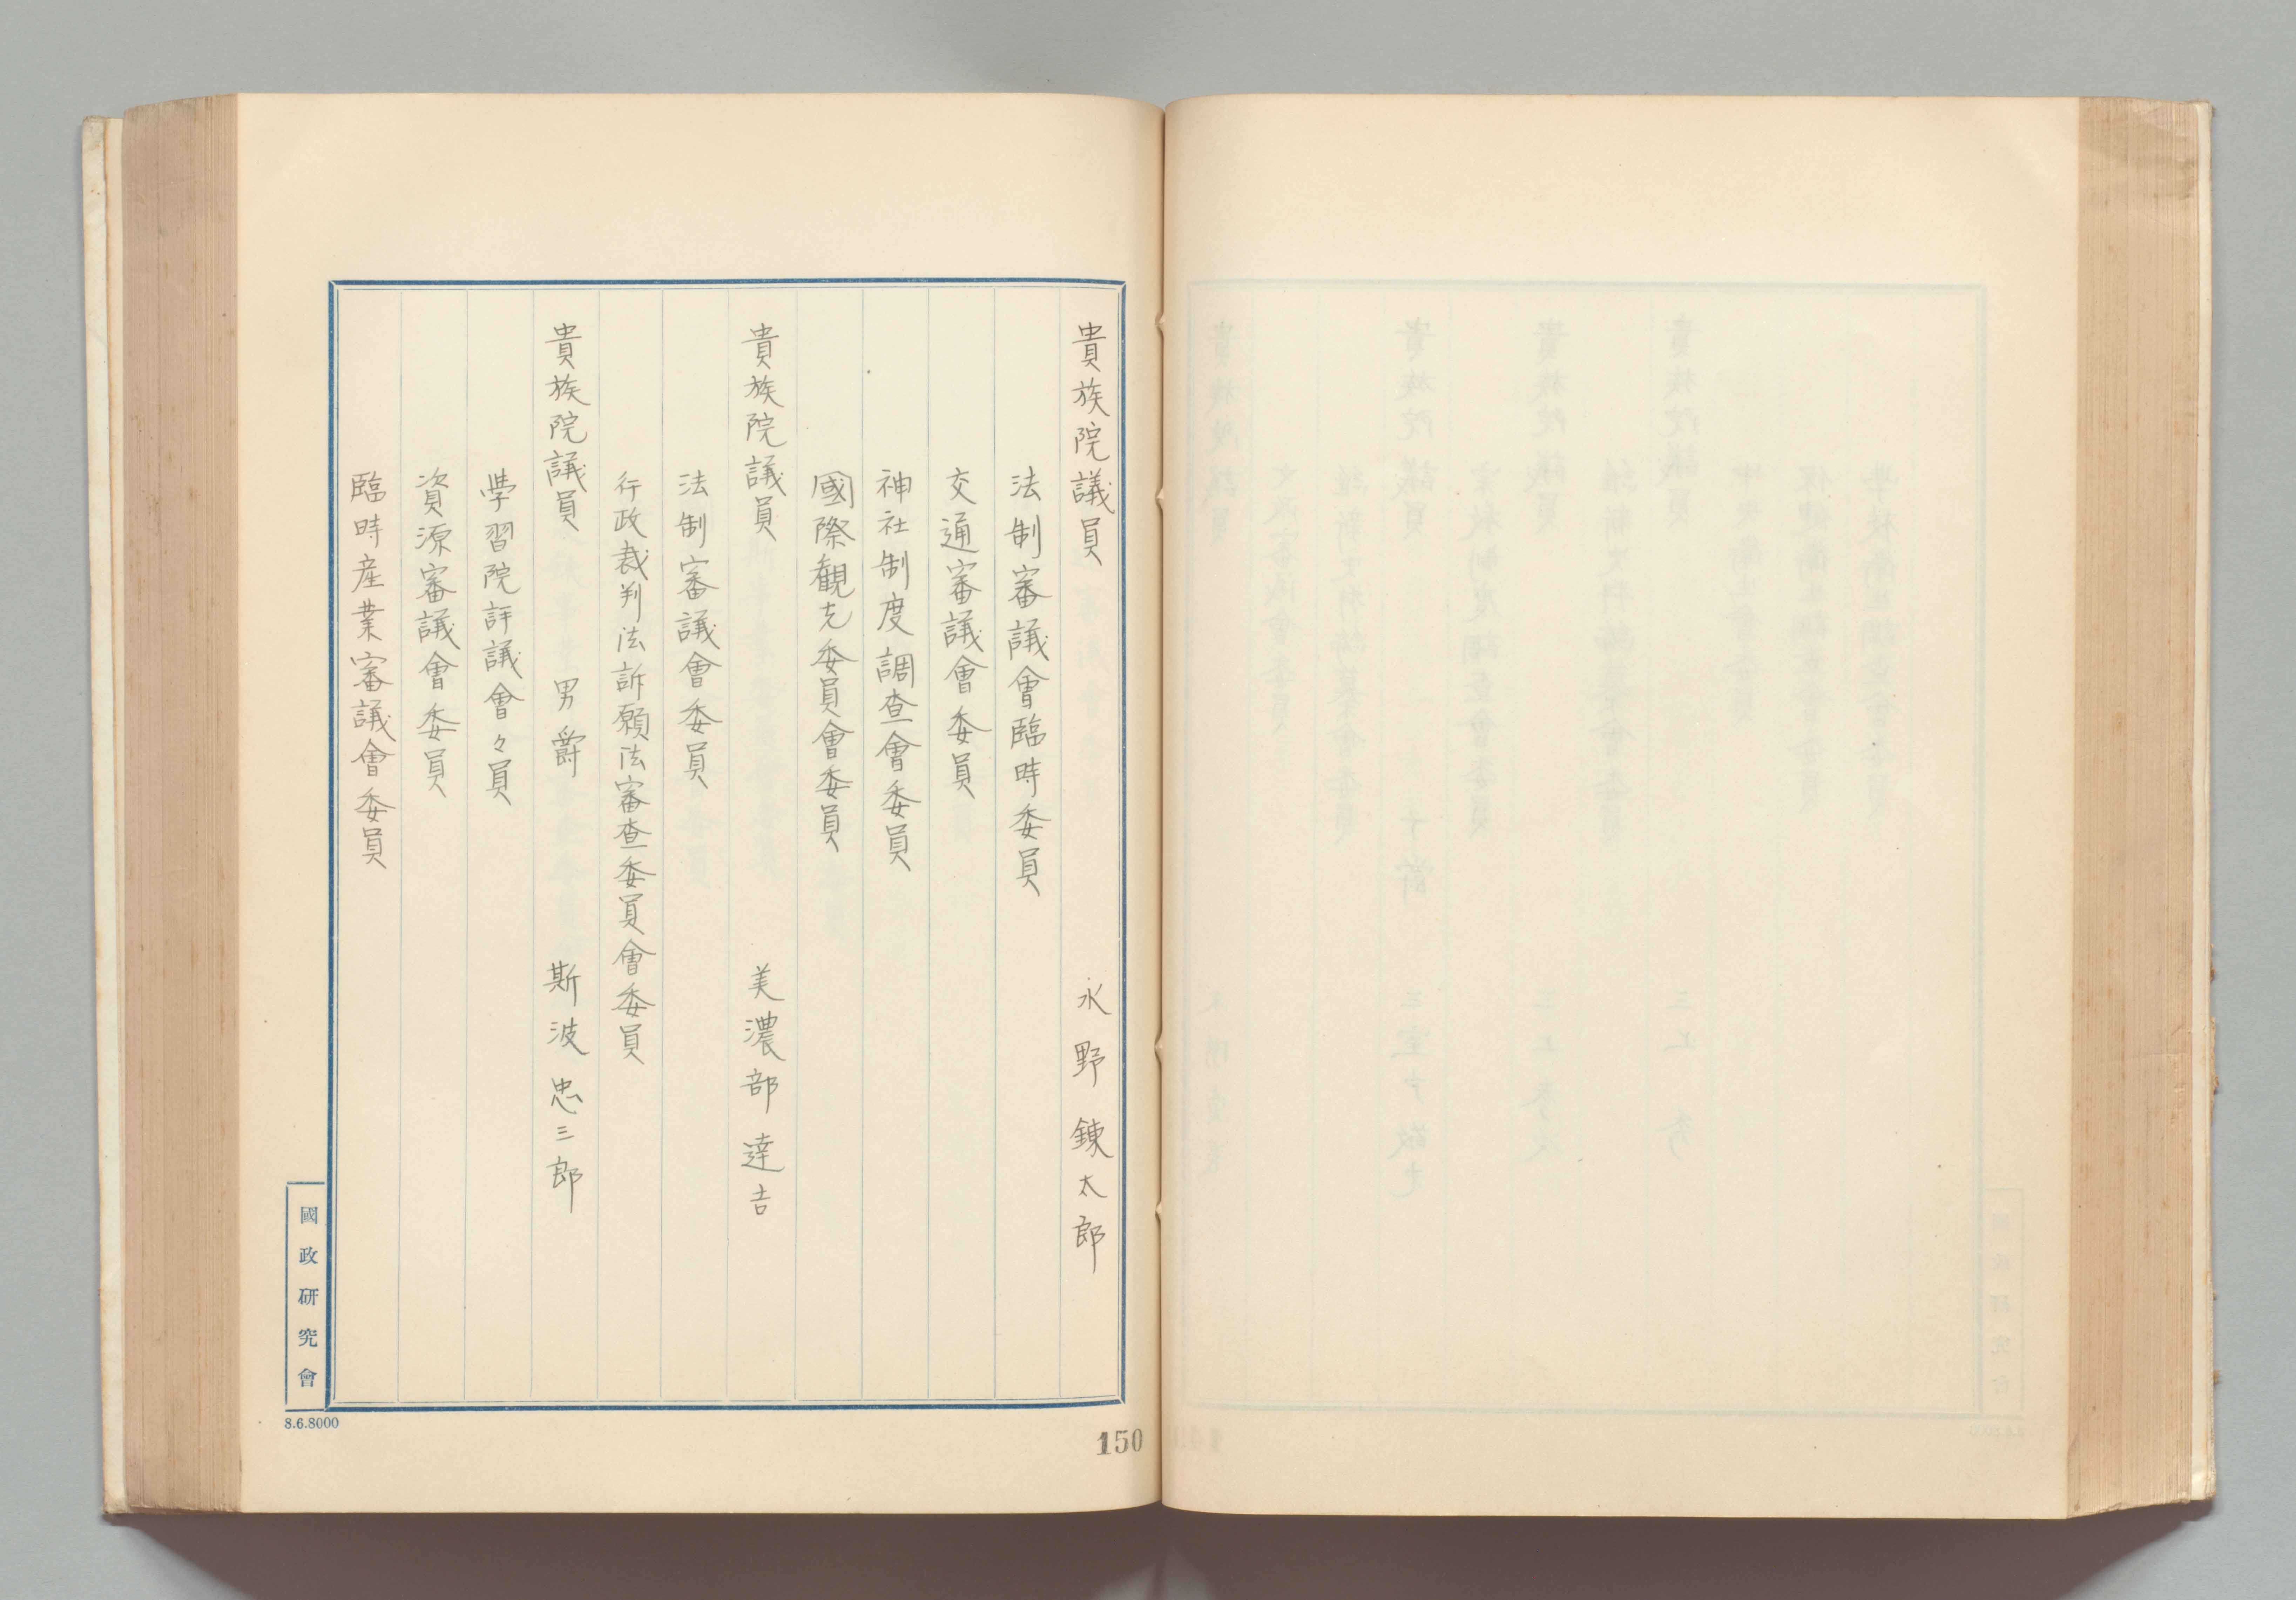 貴族院議員 水野錬太郎
法制審議會臨時委員
交通審議會委員
神社制度調査會委員
國際観光委員會委員
貴族院議員 美濃部達吉
法制審議會委員
行政裁判法訴願法審査委員會委員
貴族院議員 男爵 斯波忠三郎
學習院評議會々員
資源審議會委員
臨時産業審議會委員
國政研究會
8.6.8000
150